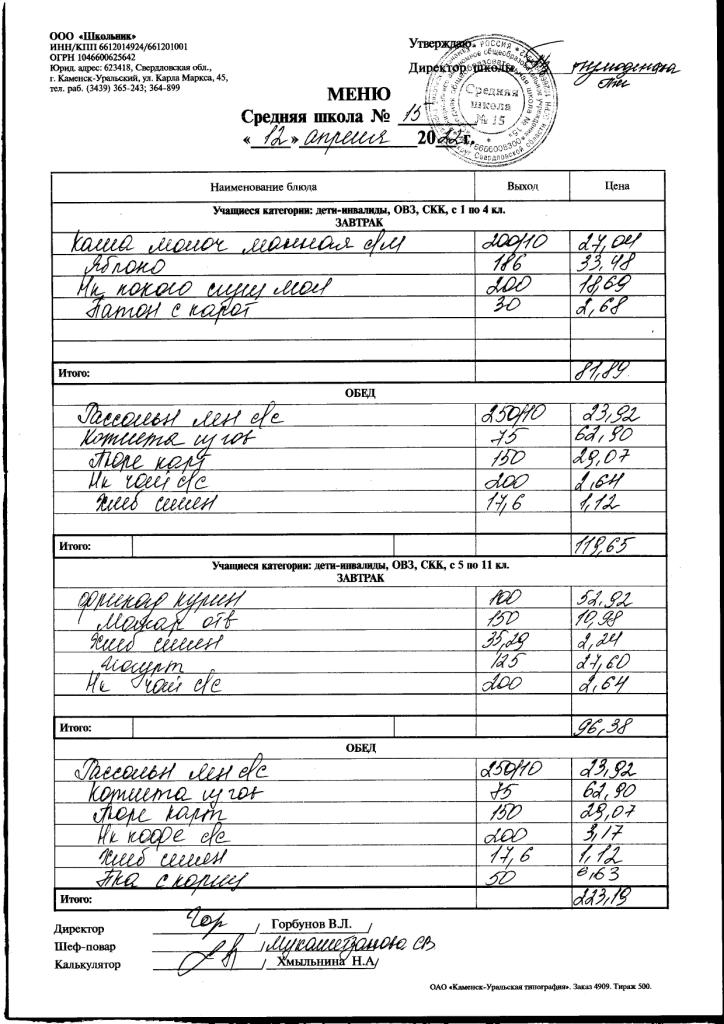 ООО «Школьник»
ИНН/КПП 6612014924/661201001
ОГРН 1046600625642
Юрид. адрес: 623418, Свердловская обл.,
г. Каменск-Уральский, ул. Карла Маркса, 45,
тел. раб. (3439) 365-243; 364-899
Утверждаю:
Директор школы
Средняя
школа
№ 15
МЕНЮ
Средняя школа № 15
« 12 » апреля 2022 г.
Наименование блюда Выход Цена
Учащиеся категории: дети-инвалиды, ОВЗ, СКК, с 1 по 4 кл.
ЗАВТРАК
Каша молоч манная с/м 200/10 27,04
Яблоко 186 33,48
Нк какао сгущ мол 200 18,69
Батон с карот 30 2,68
Итого: 81,89
ОБЕД
Рассольн лен с/с 250/10 23,92
Котлета 75 62,90
Пюре карт 150 29,07
Нк чай с/с 200 2,64
Хлеб 17,6 1,12
Итого: 119,65
Учащиеся категории: дети-инвалиды, ОВЗ, СКК, с 5 по 11 кл.
ЗАВТРАК
курин 100 52,92
Макар отв 150 10,98
Хлеб 35,29 2,24
Йогурт 125 27,60
Нк чай с/с 200 2,64
Итого: 96,38
ОБЕД
Рассольн лен с/с 250/10 23,92
Котлета 75 62,90
Пюре карт 150 29,07
Нк кофе с/с 200 3,17
Хлеб 17,6 1,12
с кориц 50 6,63
Итого: 223,19
Директор / Горбунов В.Л. /
Шеф-повар / СВ
Калькулятор / Хмыльнина Н.А/
ОАО «Каменск-Уральская типография». Заказ 4909. Тираж 500.